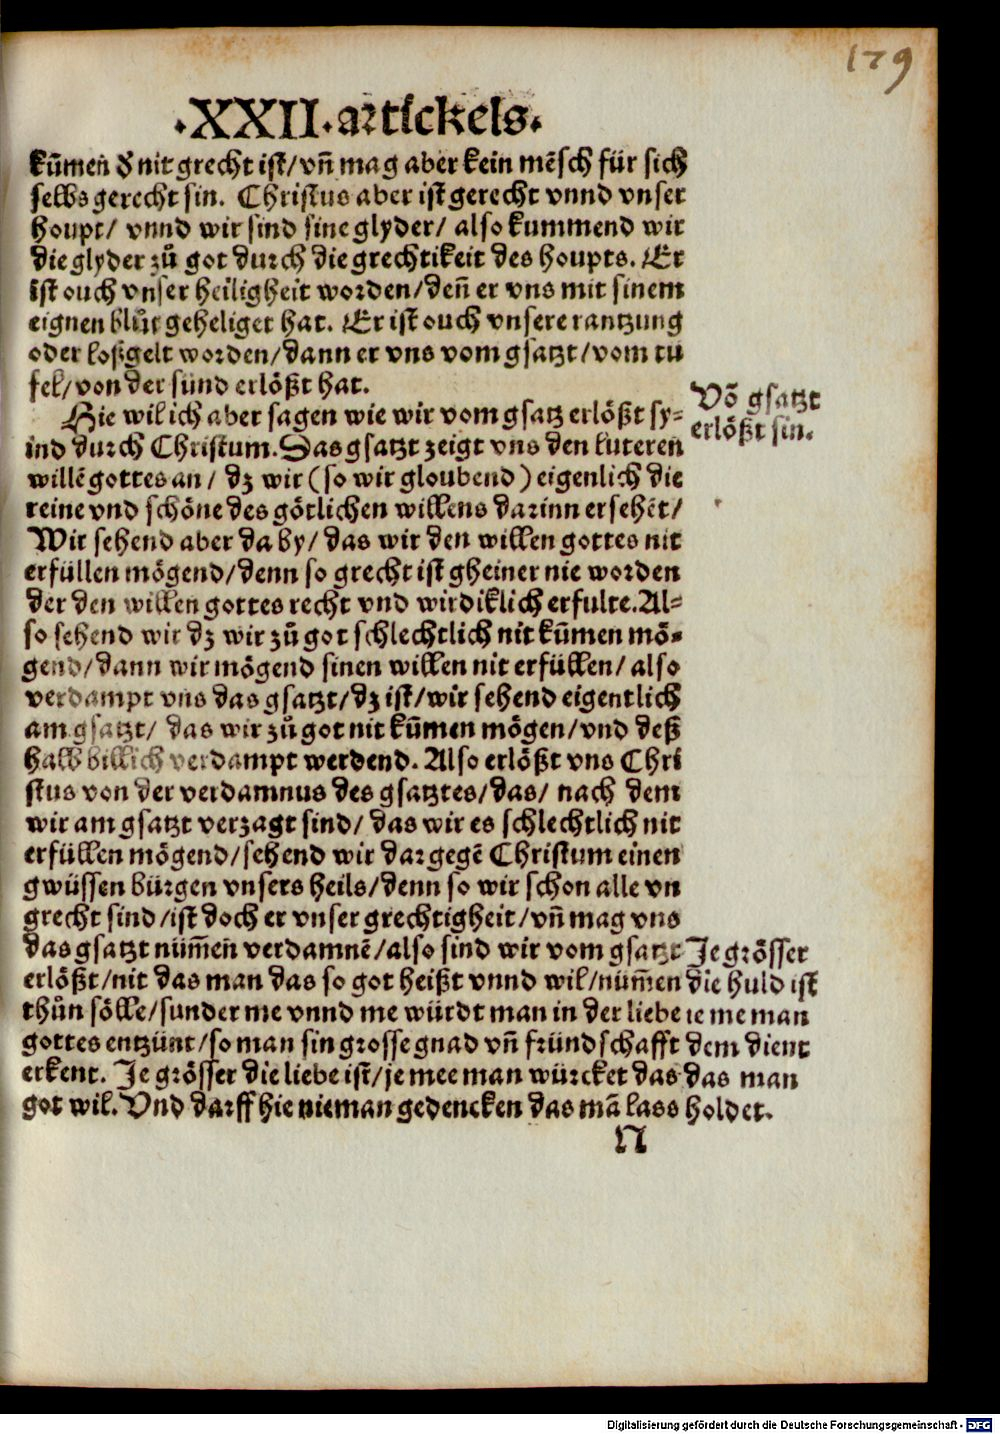 179
.XXII.artickels.
kūmen ð nit grecht ist/vn̄ mag aber kein mēsch für sich
selbs gerecht sin. Christus aber ist gerecht vnnd vnser
houpt/ vnnd wir sind sine glyder/ also kummend wir
die glyder zů got durch die grechtikeit des houpts. Er
ist ouch vnser heiligheit worden/den̄ er vns mit sinem
eignen blůt geheliget hat. Er ist ouch vnsere rantzung
oder loßgelt worden/dann er vns vom gsatzt/vom tu
fel/von der sünd erlößt hat.
Hie wil ich aber sagen wie wir vom gsatz erlößt sy⸗
ind durch Christum. Das gsatzt zeigt vns den luteren
willē gottes an/ dz wir (so wir gloubend) eigenlich die
reine vnd schöne des götlichen willens darinn ersehēt/
Wir sehend aber da by/ das wir den willen gottes nit
erfüllen mögend/denn so grecht ist gheiner nie worden
der den willen gottes recht vnd wirdiklich erfulte. Al⸗
so sehend wir dz wir zů got schlechtlich nit kūmen mö⸗
gend/dann wir mögend sinen willen nit erfüllen/ also
verdampt vns das gsatzt/dz ist/wir sehend eigentlich
am gsatzt/ das wir zů got nit kūmen mögen/vnd deß
halb billich verdampt werdend. Also erlößt vns Chri
stus von der verdamnus des gsatztes/das/ nach dem
wir am gsatzt verzagt sind/ das wir es schlechtlich nit
erfüllen mögend/sehend wir dargegē Christum einen
gwüssen bürgen vnsers heils/denn so wir schon alle vn
grecht sind/ist doch er vnser grechtigheit/vn̄ mag vns
das gsatzt nüm̄en verdamnē/also sind wir vom gsatzt
erlößt/nit das man das so got heißt vnnd wil/nüm̄en
thůn sölle/sunder me vnnd me würdt man in der liebe
gottes entzünt/so man sin grosse gnad vn̄ fründschafft
erkent. Je grösser die liebe ist/je mee man würcket das
got wil. Vnd darff hie nieman gedencken das mā lass
N
Vō gsatzt
erlößt sin.
Je grösser
die huld ist
ie me man
dem dient
das man
holdet.
Digitalisierung gefördert durch die Deutsche Forschungsgemeinschaft - DFG